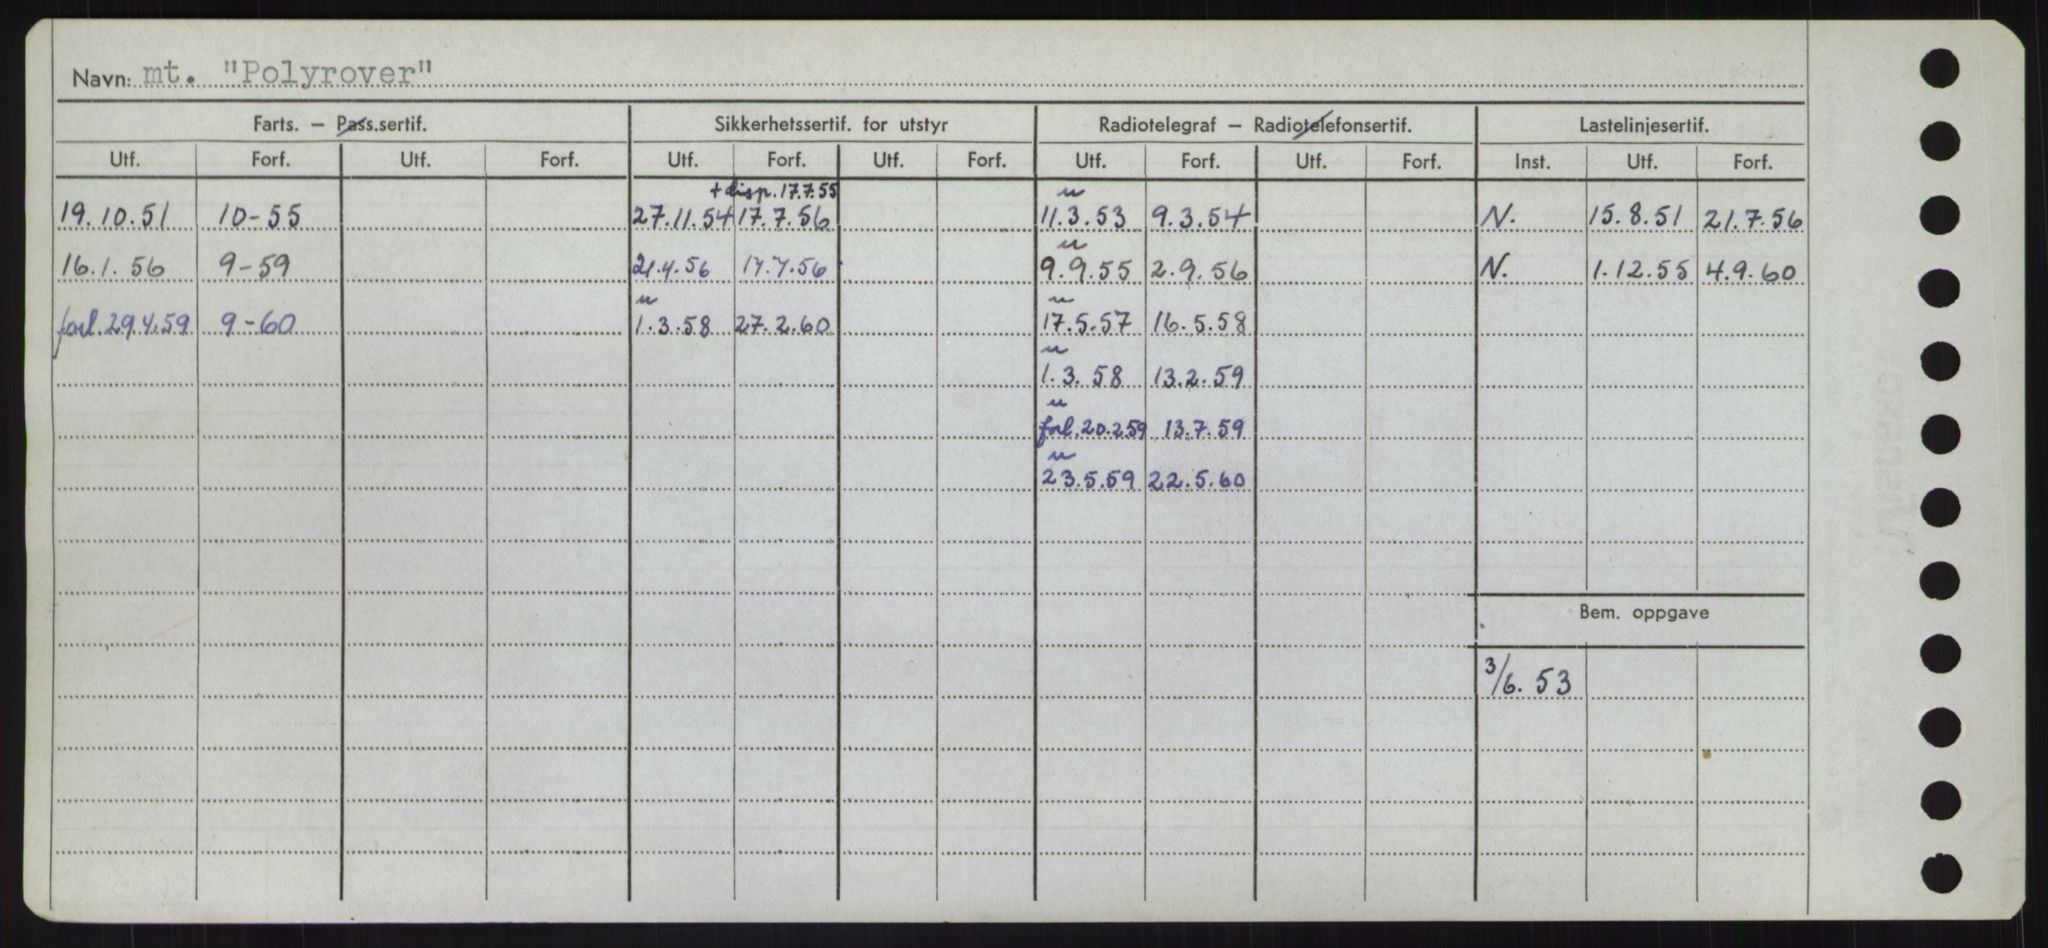 Navn: mt. "Polyrover"
Farts. — Pass.sertif. Sikkerhetssertif. for utstyr Radiotelegraf — Radiotelefonsertif. Lastelinjesertif.
Utf. Forf. Utf. Forf. Utf. Forf. Utf. Forf. Utf. Forf. Utf. Forf. Inst. Utf. Forf.
+ disp. 17.7.55 u
19.10.51 10-55 27.11.54 17.7.56 11.3.53 9.3.54 N. 15.8.51 21.7.56
u
16.1.56 9-59 21.4.56 17.7.56 9.9.55 2.9.56 N. 1.12.55 4.9.60
u u
forl. 29.4.59 9-60 1.3.58 27.2.60 17.5.57 16.5.58
u
1.3.58 13.2.59
u
forl. 20.2.59 13.7.59
u
23.5.59 22.5.60
Bem. oppgave
3/6. 53